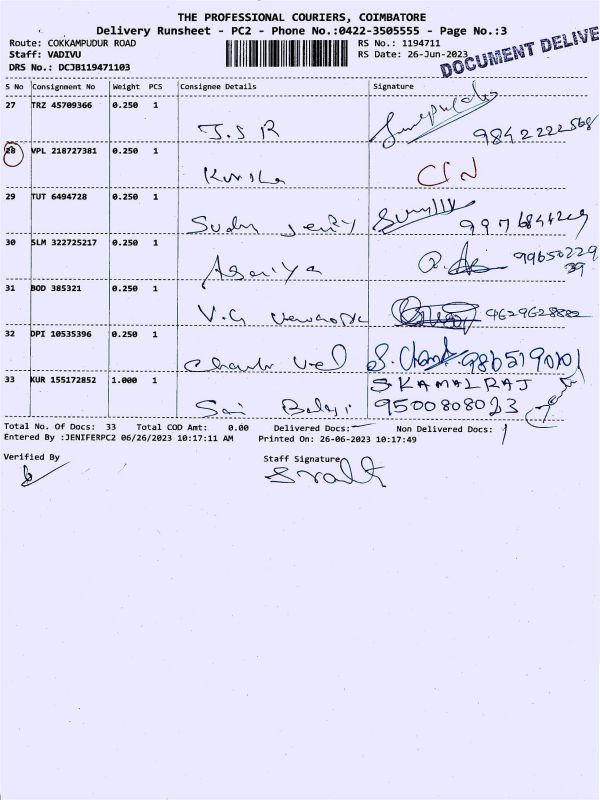 THE PROFESSIONAL COURIERS, COIMBATORE
Delivery Runsheet - PC2 - Phone No.:0422-3505555 - Page No.:3
Route: COKKAMPUDUR ROAD RS No.: 1194711
Staff: VADIVU RS Date: 26-Jun-2023
DRS No.: DCJB119471103
DOCUMENT DELIVE
S No Consignment No Weight PCS Consignee Details Signature
27 TRZ 45709366 0.250 1
J.S R 9842222568
28 VPL 218727381 0.250 1
CIN
29 TUT 6494728 0.250 1
30 SLM 322725217 0.250 1
9965022939
31 BOD 385321 0.250 1
V.G 9629628882
32 DPI 10535396 0.250 1
S.Chand
33 KUR 155172852 1.000 1 S KAMALRAJ
Sai Balaji 9500808023
Total No. Of Docs: 33 Total COD Amt: 0.00 Delivered Docs: Non Delivered Docs: 1
Entered By :JENIFERPC2 06/26/2023 10:17:11 AM Printed On: 26-06-2023 10:17:49
Verified By Staff Signature